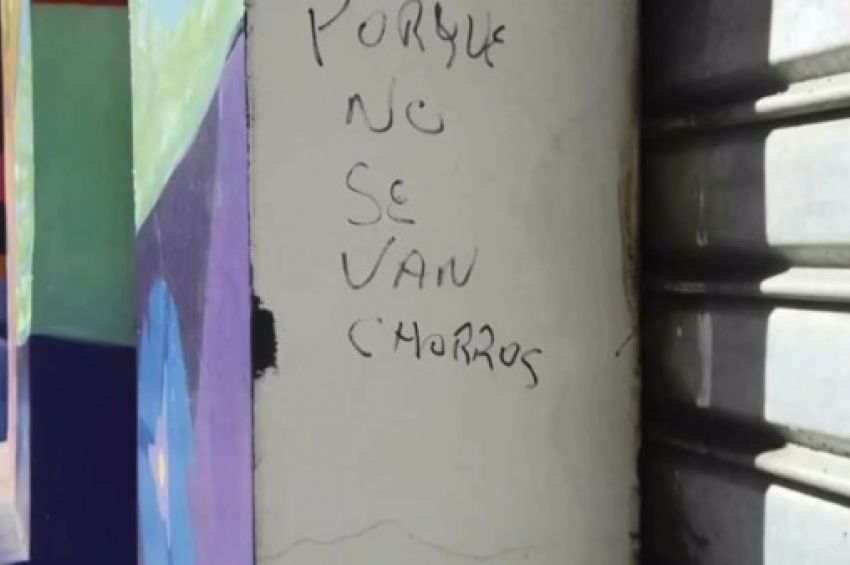 PORQUE
NO
SE
VAN
CHORROS